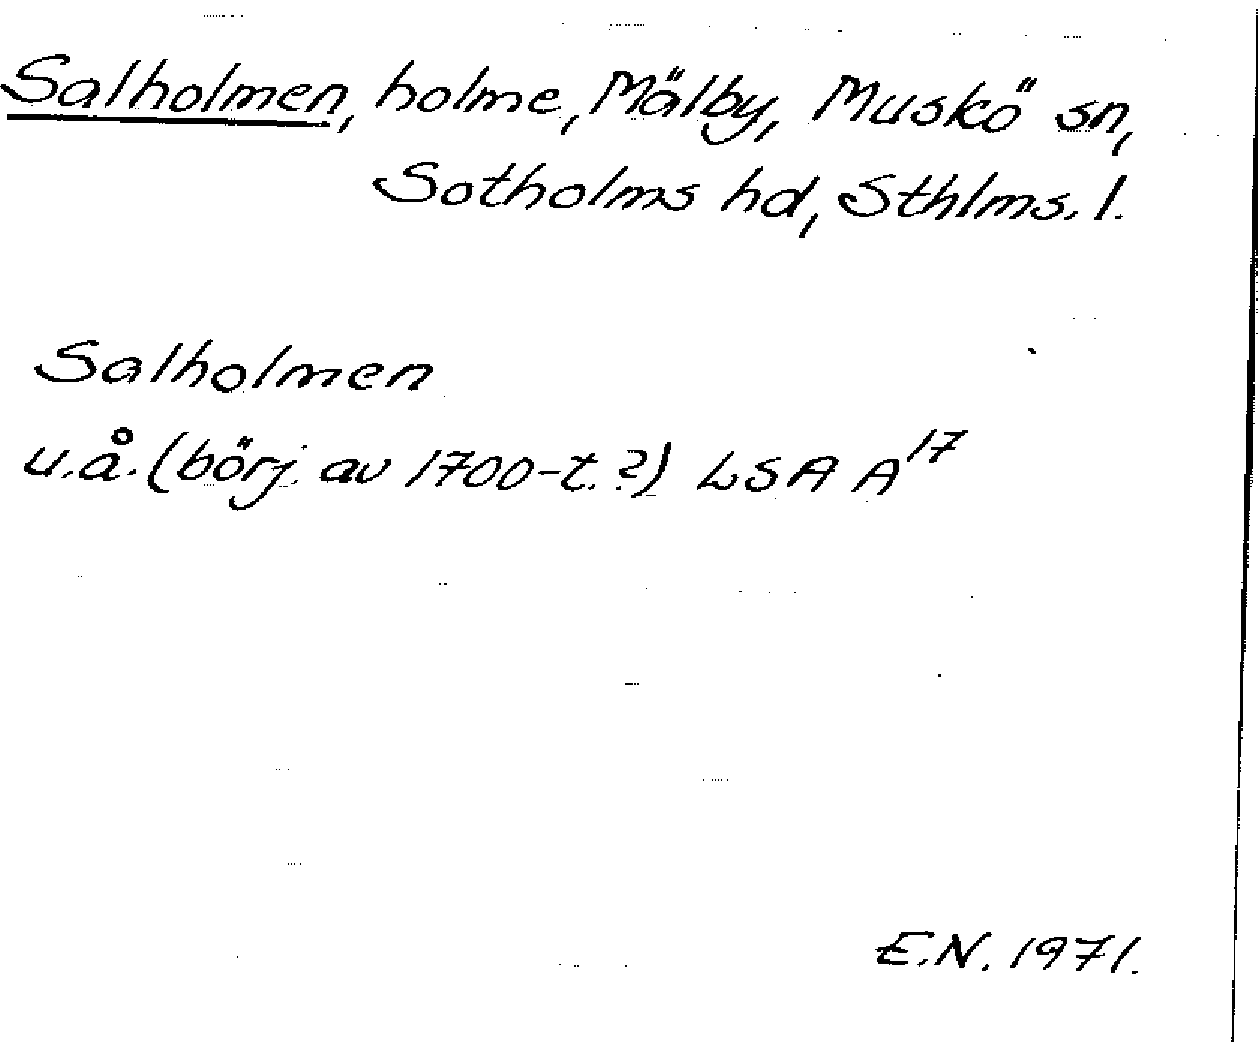 Salholmen, holme, Mälby, Muskö sn,
Sotholms hd, Sthlms. l.
Salholmen
u.å. (börj. av 1700-t. ?) LSA A¹⁷
E.N. 1971.